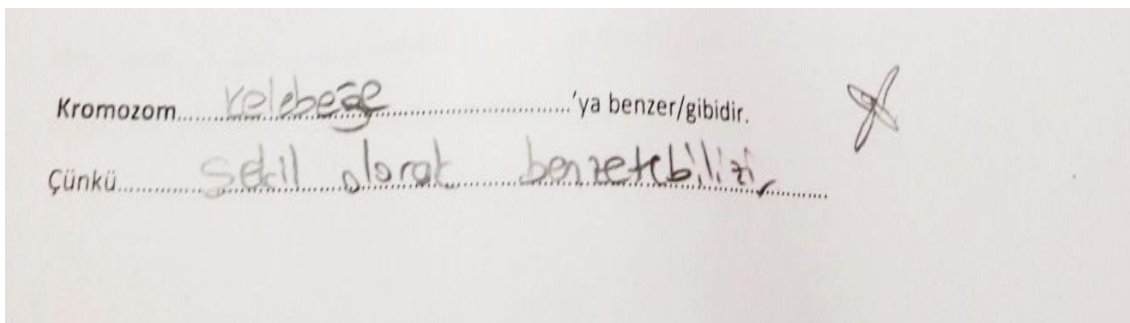 Kromozom......kelebeğe......'ya benzer/gibidir.
Çünkü......şekil olarak benzetebiliriz